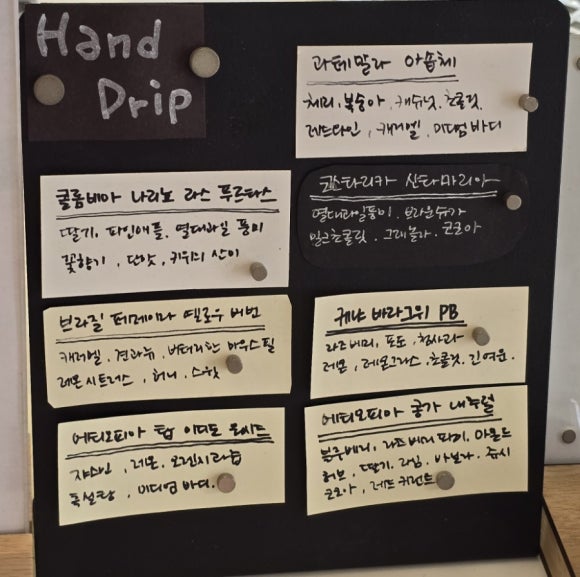 Hand
Drip
과테말라 아숩체
체리, 복숭아, 캐슈넛, 초콜릿,
레드와인, 캐러멜, 미디엄 바디
콜롬비아 나리뇨 라스 푸르타스
딸기, 파인애플, 열대과일 풍미
꽃향기, 단맛, 키위의 산미
코스타리카 산타마리아
열대과일풍미, 브라운슈가
밀크초콜릿, 그래놀라, 코코아
브라질 파제이마 옐로우 버번
캐러멜, 견과류, 버터리한 마우스필
레몬 시트러스, 허니, 스윗
케냐 바라그위 PB
라즈베리, 포도, 청사과
레몬, 레몬그라스, 초콜릿, 긴여운
에티오피아 탑 이디도 워시드
쟈스민, 레몬, 오렌지과즙
흑설탕, 미디엄 바디
에티오피아 궁가 내추럴
블루베리, 라즈베리 파이, 아몬드
허브, 딸기, 라임, 바닐라, 쥬시
코코아, 레드 커런트